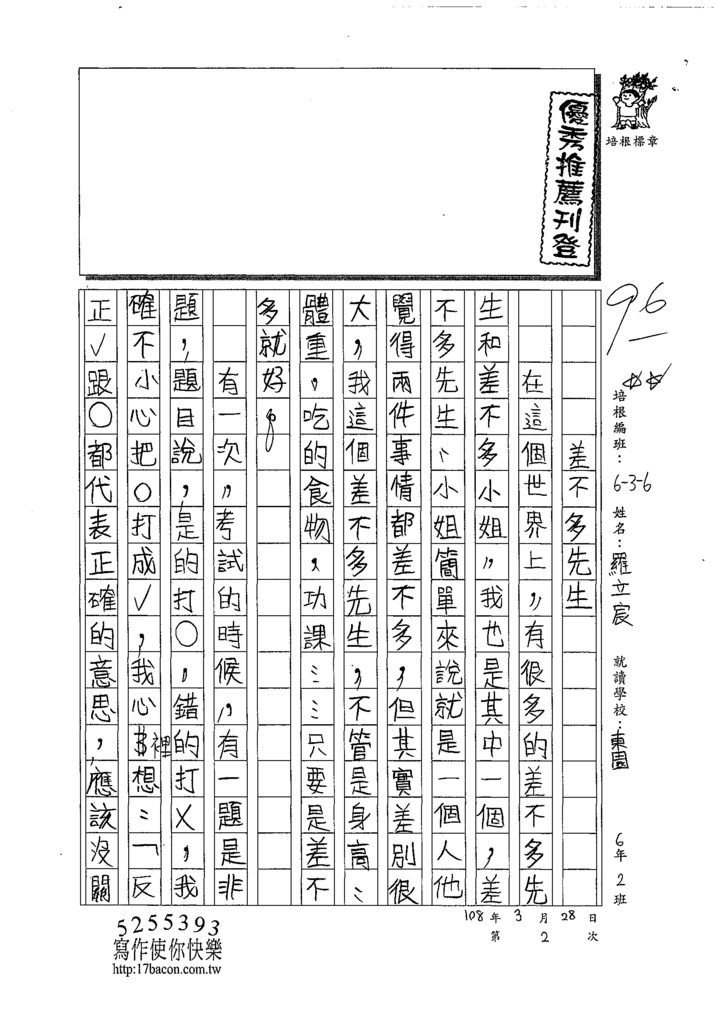 優秀推薦刊登
培根標章
96
培根編班：6-3-6 姓名：羅立宸 就讀學校：東園 6年2班
108年3月28日
第2次
差不多先生
在這個世界上，有很多的差不多先
生和差不多小姐，我也是其中一個，差
不多先生、小姐簡單來說就是一個人他
覺得兩件事情都差不多，但其實差別很
大，我這個差不多先生，不管是身高、
體重，吃的食物，功課……只要是差不
多就好。
有一次，考試的時候，有一題是是非
題，題目說，是的打○，錯的打╳，我
確不小心把○打成✓，我心裡想：「反
正✓跟○都代表正確的意思，應該沒關
5255393
寫作使你快樂
http:17bacon.com.tw